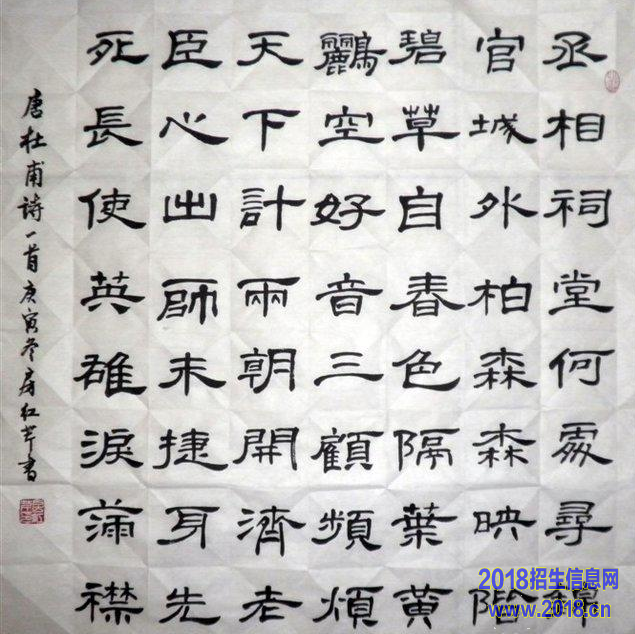 丞相祠堂何處尋錦
官城外柏森森映階
碧草自春色隔葉黃
鸝空好音三顧頻煩
天下計兩朝開濟老
臣心出師未捷身先
死長使英雄淚滿襟
唐杜甫詩一首庚寅冬房红書
2018招生信息网
www.2018.cn